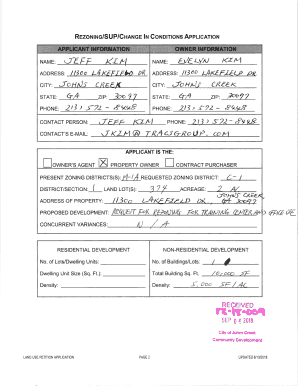 REZONING/SUP/CHANGE IN CONDITIONS APPLICATION
APPLICANT INFORMATION OWNER INFORMATION
NAME: JEFF KIM NAME: EVELYN KIM
ADDRESS: 11300 LAKEFIELD DR ADDRESS: 11300 LAKEFIELD DR
CITY: JOHNS CREEK CITY: JOHNS CREEK
STATE: GA ZIP: 30097 STATE: GA ZIP: 30097
PHONE: 213) 572-8448 PHONE: 213) 572-8448
CONTACT PERSON: JEFF KIM PHONE: 213) 572-8448
CONTACT'S E-MAIL: JKIM@TRACSGROUP.COM
APPLICANT IS THE:
OWNER'S AGENT X PROPERTY OWNER CONTRACT PURCHASER
PRESENT ZONING DISTRICTS(S): M-1A REQUESTED ZONING DISTRICT: C-1
DISTRICT/SECTION: 1 LAND LOT(S): 374 ACREAGE: 2 AC
ADDRESS OF PROPERTY: 11300 LAKEFIELD DR, JOHNS CREEK GA 30097
PROPOSED DEVELOPMENT: REQUEST FOR REZONING FOR TRAINING CENTER AND OFFICE USE
CONCURRENT VARIANCES: N/A
RESIDENTIAL DEVELOPMENT NON-RESIDENTIAL DEVELOPMENT
No. of Lots/Dwelling Units: No. of Buildings/Lots: 1
Dwelling Unit Size (Sq. Ft.): Total Building Sq. Ft. 10,000 SF
Density: Density: 5,000 SF/AC
RECEIVED
SEP 04 2019
City of Johns Creek
Community Development
LAND USE PETITION APPLICATION PAGE 2